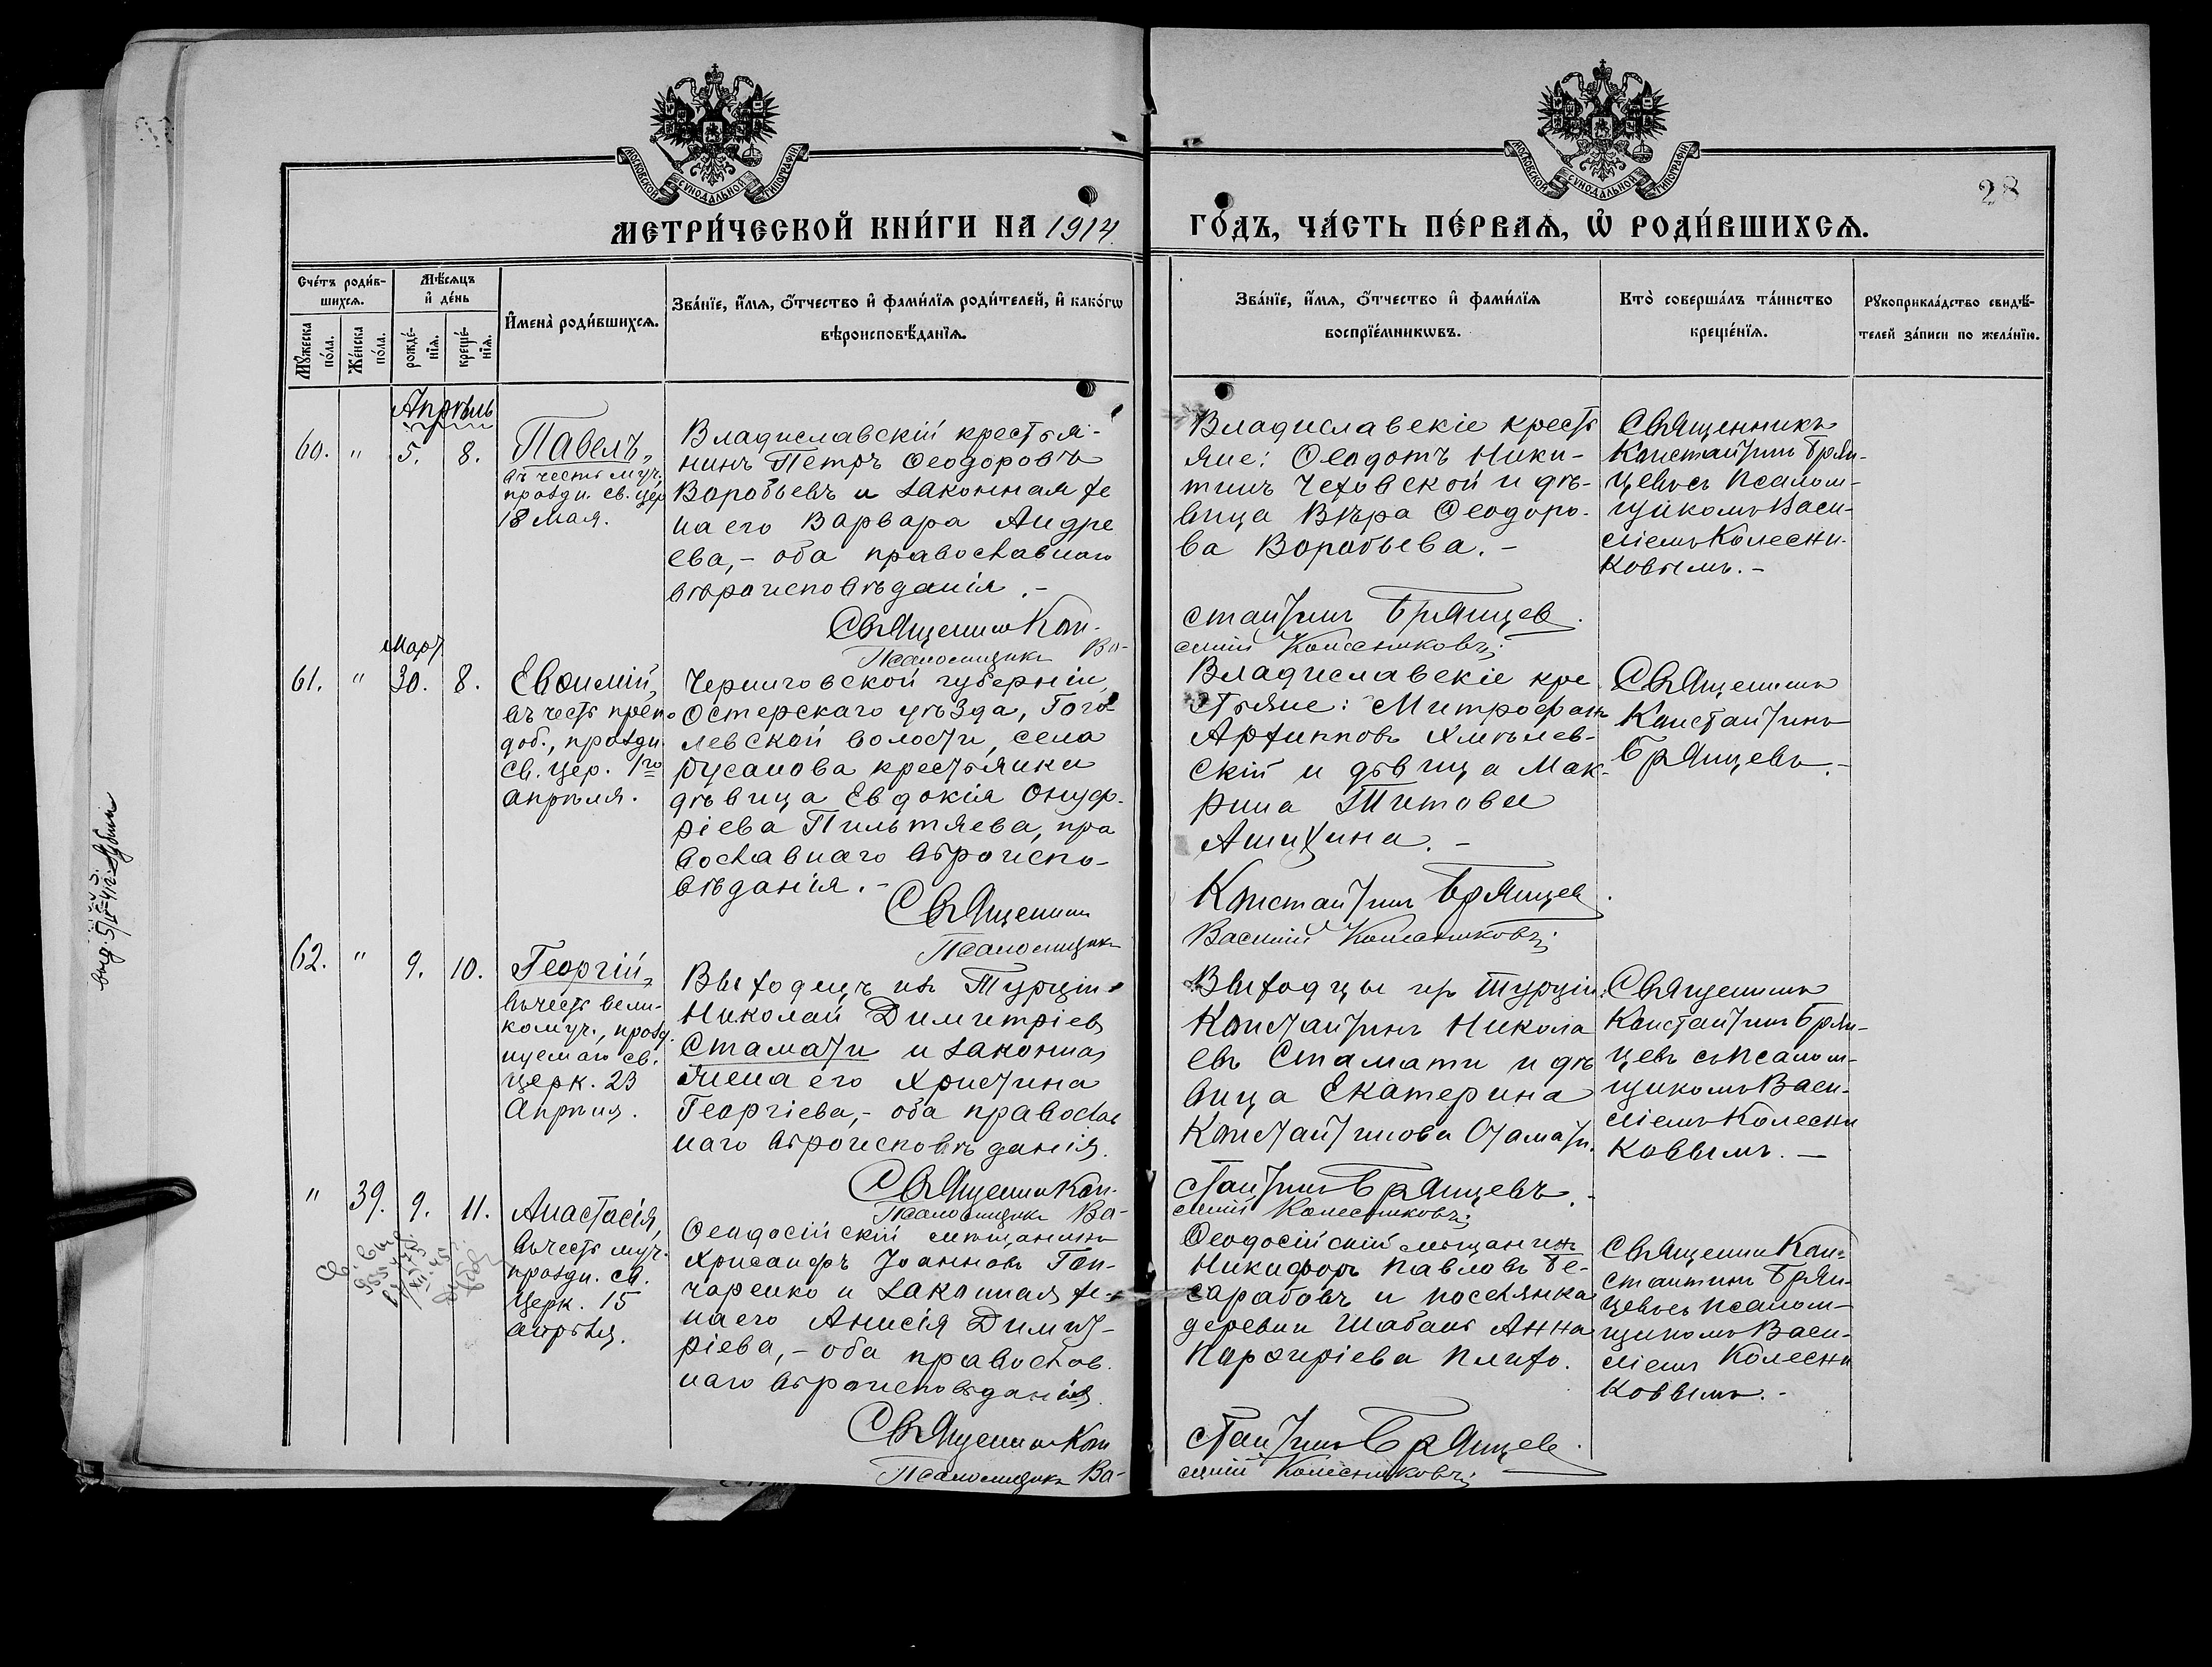 МОСКОВСКОЙ СѴНОДАЛЬНОЙ ТИПОГРАФІИ
МОСКОВСКОЙ СѴНОДАЛЬНОЙ ТИПОГРАФІИ
28
МЕТРИ́ЧЕСКОЙ КНИ́ГИ НА 1914
ГО́ДЪ, ЧА́СТЬ ПЕ́РВАѦ, Ѽ РОДИ́ВШИХСѦ.
Сче́тъ роди́в-
шихсѧ.
Мѣ́сѧцъ
и҆ де́нь
И҆мена̀ роди́вшихсѧ.
Зва́нїе, и҆́мѧ, ѻ҆́тчество и҆ фами́лїѧ роди́телей, и҆ како́гѡ
вѣроисповѣ́данїѧ.
Мꙋ́жеска
по́ла.
Же́нска
по́ла.
рожде́-
нїѧ.
креще́-
нїѧ.
Зва́нїе, и҆́мѧ, ѻ҆́тчество и҆ фами́лїѧ
воспрїе́мникѡвъ.
Кто̀ соверша́лъ та́инство
креще́нїѧ.
Рꙋкоприкла́дство свидѣ́-
телей за́писи по жела́нїю.
Апрѣль
60. " 5. 8.
Павелъ,
въ честь муч.
праздн. св. цер
18 мая.
Владиславскій крестья-
нинъ Петръ Ѳеодоровъ
Воробьевъ и законная же
на его Варвара Андре
ева, - оба православнаго
вѣроисповѣданія. -
Священникъ Кон-
Псаломщикъ Ва-
Владиславскіе кресть
яне: Ѳеодотъ Ники-
тинъ Чеховской и дѣ-
вица Вѣра Ѳеодоро-
ва Воробьева. -
стантинъ Брянцев
силій Колесниковъ;
Священникъ
Константинъ Брян-
цевъ съ псалом-
щикомъ Васи-
ліемъ Колесни-
ковымъ. -
Март
61. " 30. 8.
Евѳимій,
въ честь преп
доб., праздн.
св. цер. 1го
апрѣля.
Черниговской губерніи,
Остерскаго уѣзда, Гого-
левской волости, села
Русанова крестьянки
дѣвица Евдокія Онуф-
ріева Пильтяева, пра
вославнаго вѣроиспо-
вѣданія. -
Священник
Псаломщикъ
Владиславскіе кре
стьяне: Митрофанъ
Архипповъ Хмѣлев-
скій и дѣвица Мак-
рина Титова
Ашихина. -
Константинъ Брянцев
Василій Колесниковъ;
Священникъ
Константинъ
Брянцевъ. -
62. " 9. 10.
Георгій,
въ честь вели-
комуч., празд
нуемаго св.
церк. 23
Апрѣля.
Выходецъ изъ Турціи
Николай Димитріев
Стамати и законная
жена его Христина
Георгіева, - оба православ
наго вѣроисповѣданія.
Священникъ Кон-
Псаломщикъ Ва-
Выходцы изъ Турціи:
Константинъ Никола
евъ Стамати и дѣ
вица Екатерина
Константинова Стамати.
стантинъ Брянцевъ.
силій Колесниковъ;
Священникъ
Константинъ Брян-
цевъ съ псалом-
щикомъ Васи-
ліемъ Колесни
ковымъ. -
" 39. 9. 11.
Анастасія,
въ честь муч.
праздн. св.
Церк. 15
апрѣля.
Ѳеодосійскій мѣщанинъ
Хрисанфъ Іоанновъ Гон-
чаренко и законная же-
на его Анисія Димит-
ріева, - оба православ.
наго вѣроисповѣданія.
Священникъ Кон
Псаломщикъ Ва-
Ѳеодосійскій мѣщанинъ
Никифоръ Павловъ Бе-
сарабовъ и поселянка
деревни Шабань Анна
Парфиріева Плихо.
стантинъ Брянцев
силій Колесниковъ;
Священникъ Кон-
стантинъ Брян-
цевъ съ псалом-
щикомъ Васи-
ліемъ Колесни
ковымъ. -